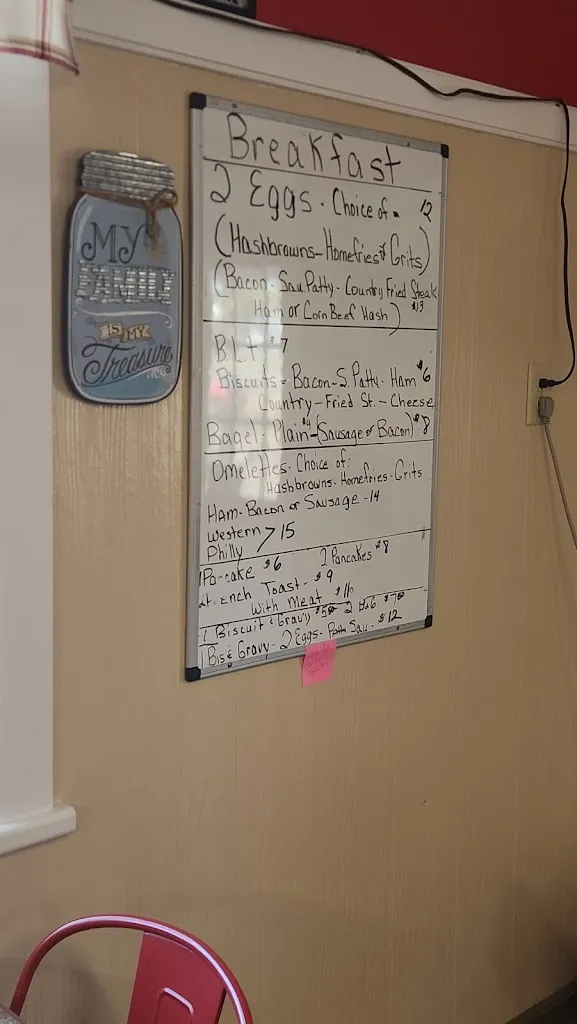 MY
FAMILY
IS MY
Treasure
Breakfast
2 Eggs - Choice of - 12
(Hashbrowns-Homefries or Grits)
(Bacon-Sau Patty-Country Fried Steak $13
Ham or Corn Beef Hash)
B.L.T. $7
Biscuits = Bacon-S. Patty-Ham $6
Country-Fried St.-Cheese
Bagel-Plain $4-(Sausage or Bacon) $8
Omelettes-Choice of:
Hashbrowns-Homefries-Grits
Ham-Bacon or Sausage -14
Western > 15
Philly
1 Pancake $6 2 Pancakes $8
Toast - $9
with Meat
1 Biscuit & Gravy 2 B&G
1 Bis & Gravy-2 Eggs-Patty Sau-$12